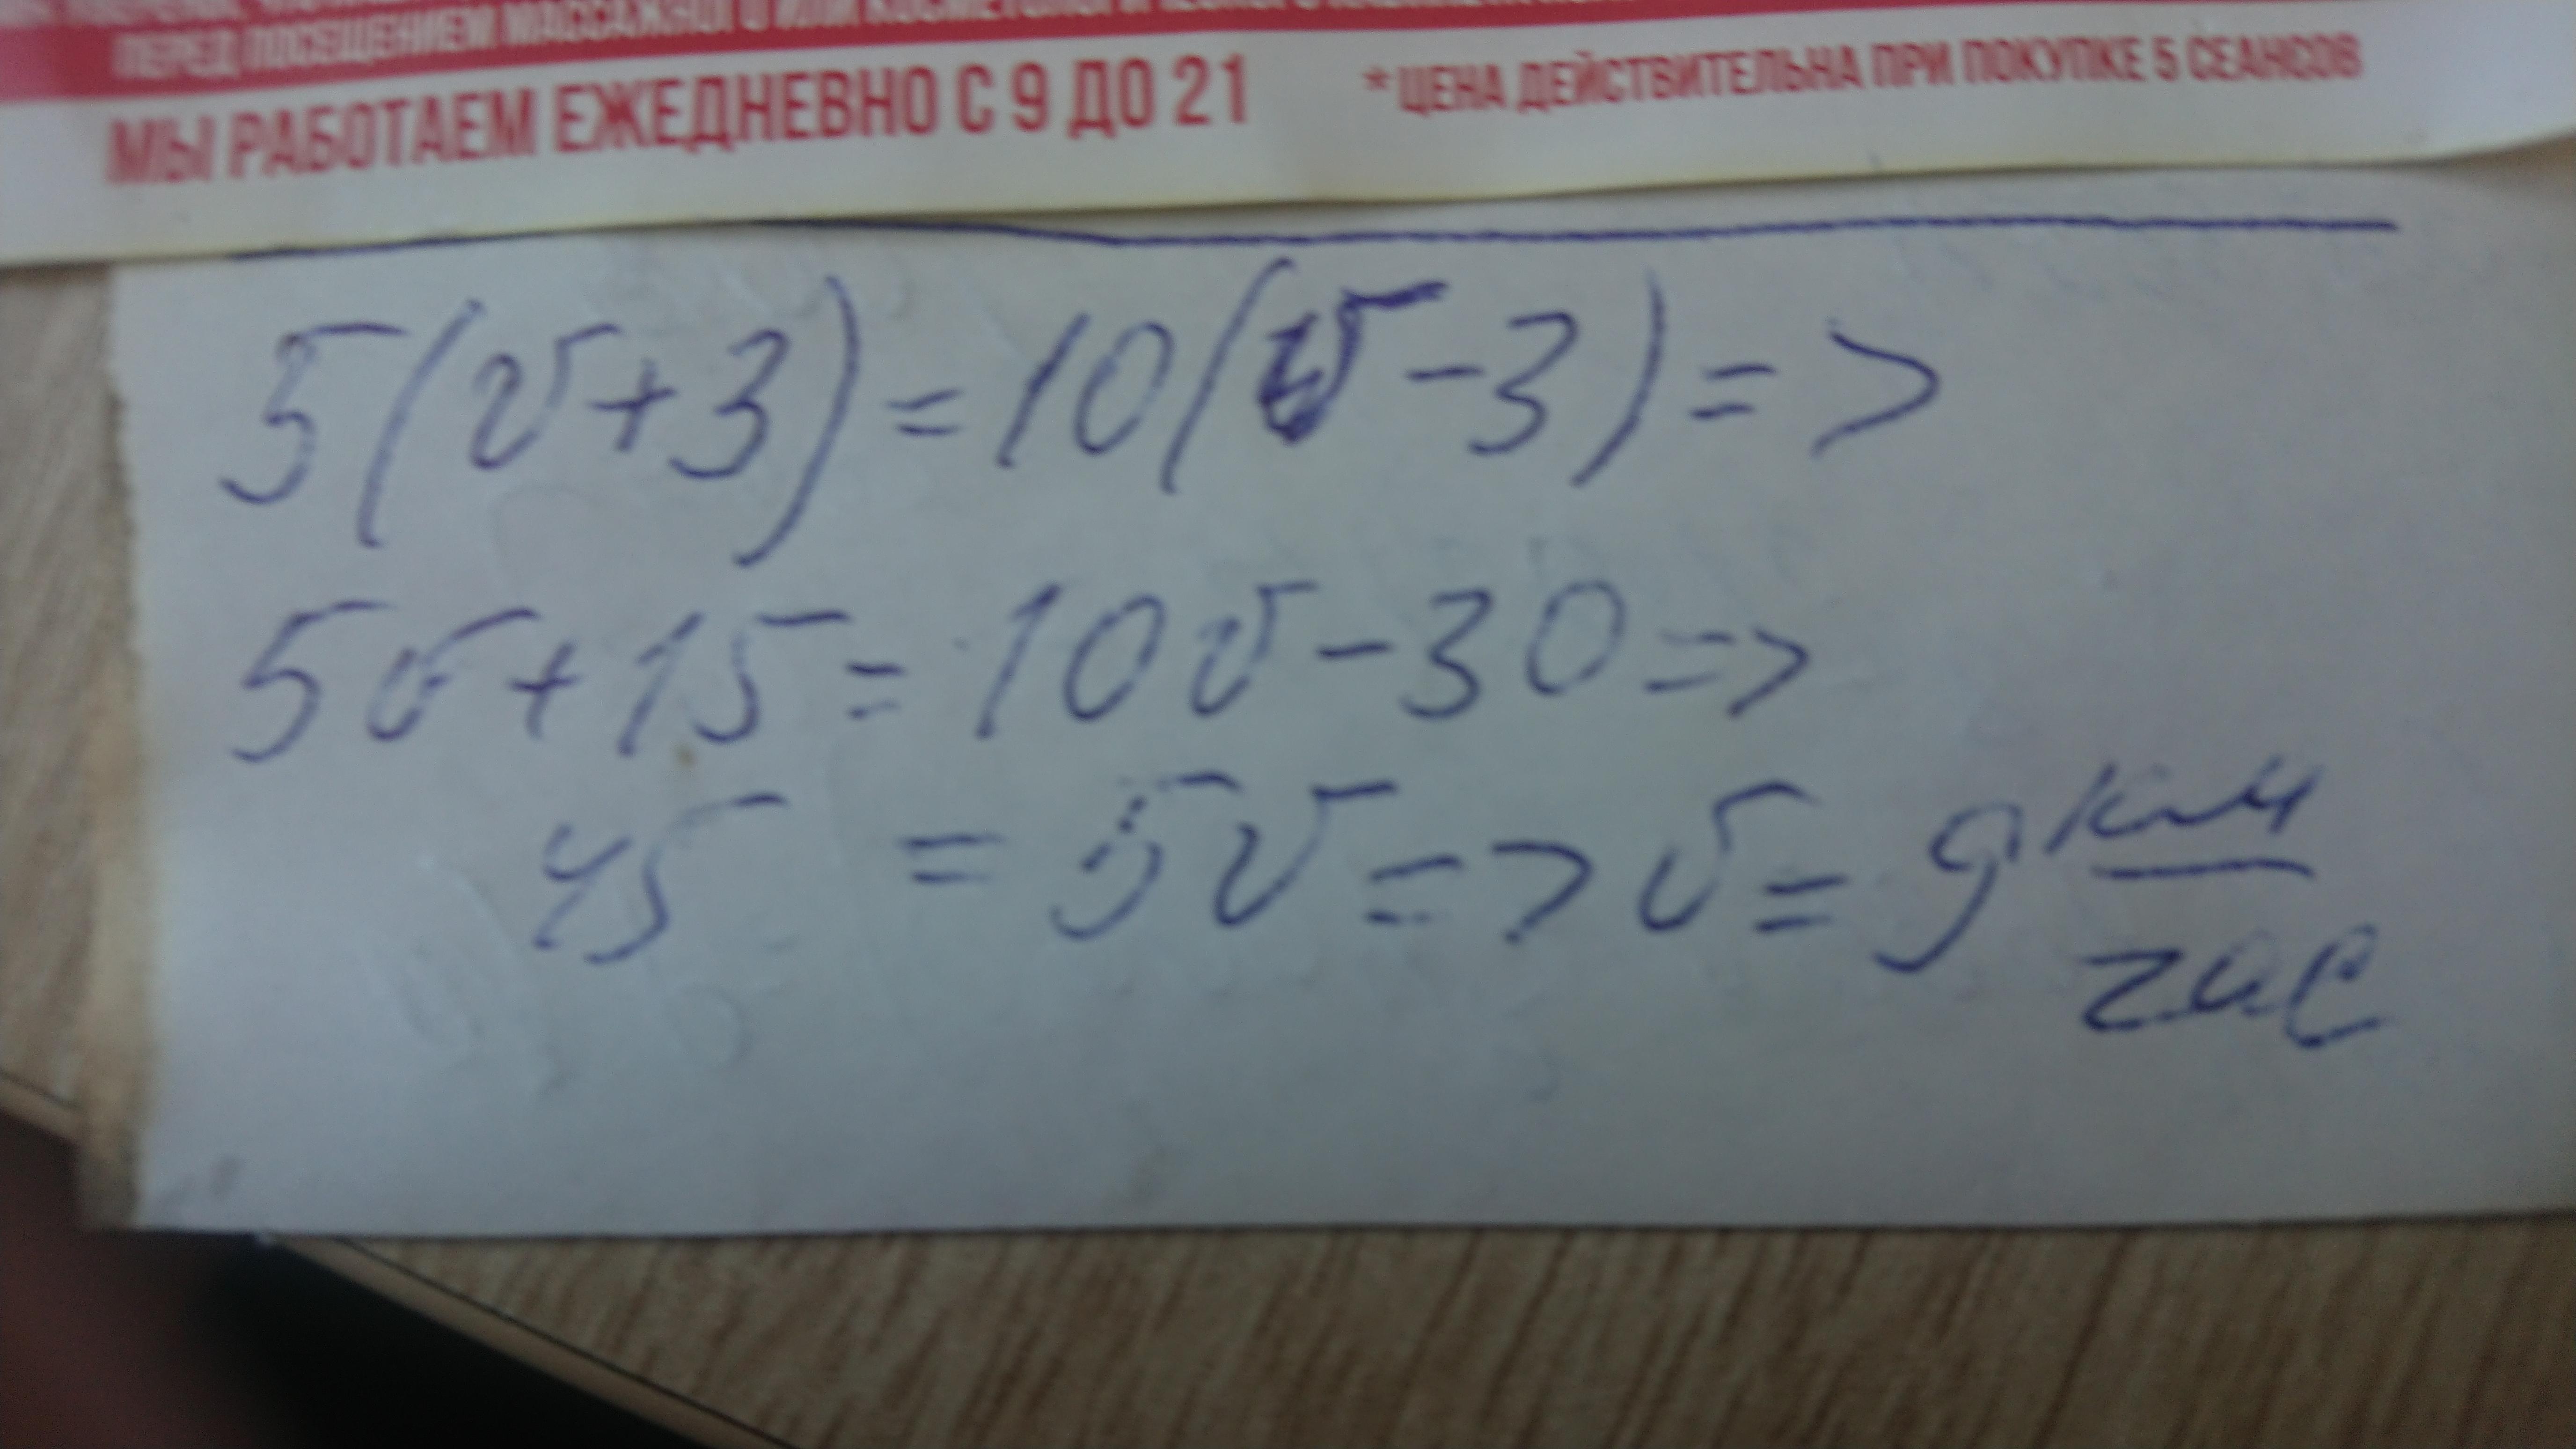 ПЕРЕД ПОСЕЩЕНИЕМ МАССАЖНОГО ИЛИ КОСМЕТОЛОГИЧЕСКОГО
МЫ РАБОТАЕМ ЕЖЕДНЕВНО С 9 ДО 21
* ЦЕНА ДЕЙСТВИТЕЛЬНА ПРИ ПОКУПКЕ 5 СЕАНСОВ
5(v+3)=10(v-3)=>
5v+15=10v-30=>
45 = 5v=>v=9 км/час